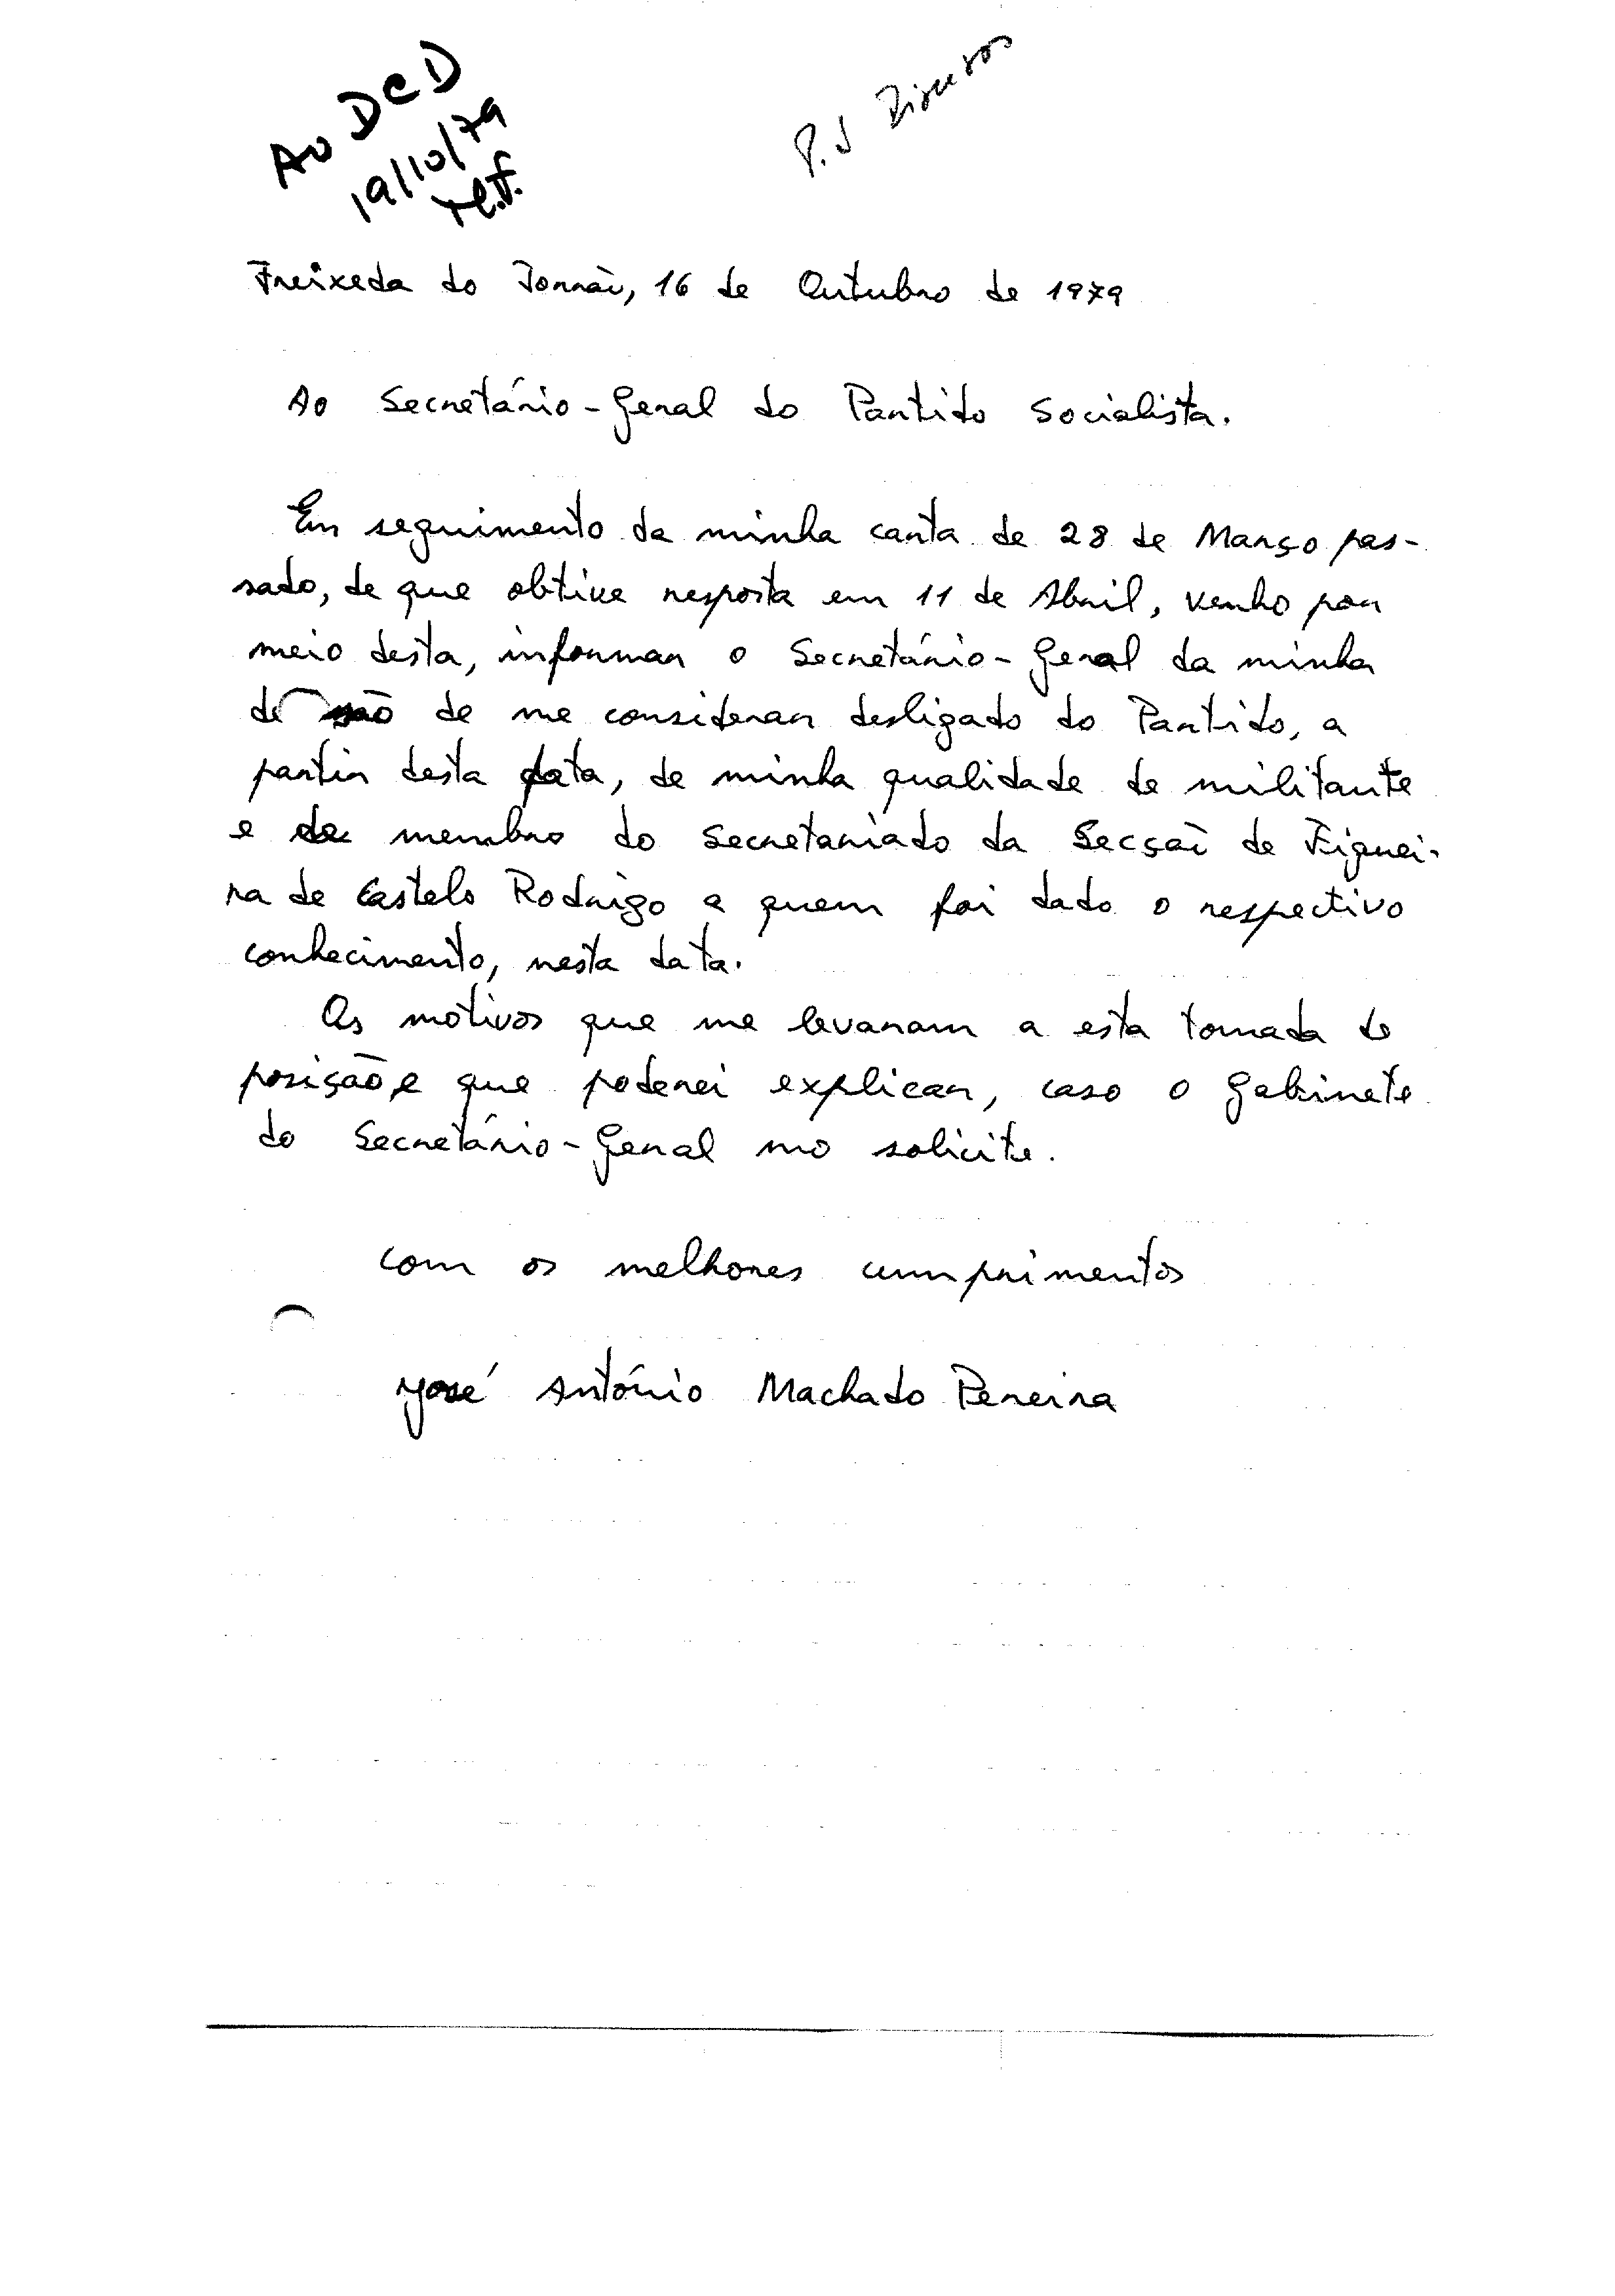 Ao DCD
19/10/79
P.S Diversos
Freixeda do Torrão, 16 de Outubro de 1979
Ao Secretário-Geral do Partido Socialista.
Em seguimento da minha carta de 28 de Março pas-
sado, de que obtive resposta em 11 de Abril, venho por
meio desta, informar o Secretário-Geral da minha
de me considerar desligado do Partido, a
partir desta data, de minha qualidade de militante
e de membro do Secretariado da Secção de Figuei-
ra de Castelo Rodrigo a quem foi dado o respectivo
conhecimento, nesta data.
Os motivos que me levaram a esta tomada de
posição, e que poderei explicar, caso o Gabinete
do Secretário-Geral mo solicite.
com os melhores cumprimentos
José António Machado Pereira